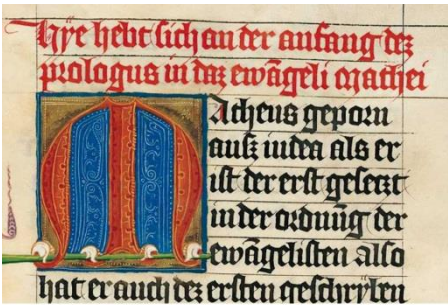 Hye hebt sich an der anfang dez
prologus in daz ewãgeli Mathei
Matheus geporn
auß iudea als er
ist der erst geseczt
in der ordnũg der
ewãgelisten also
hat er auch dez ersten geschryben